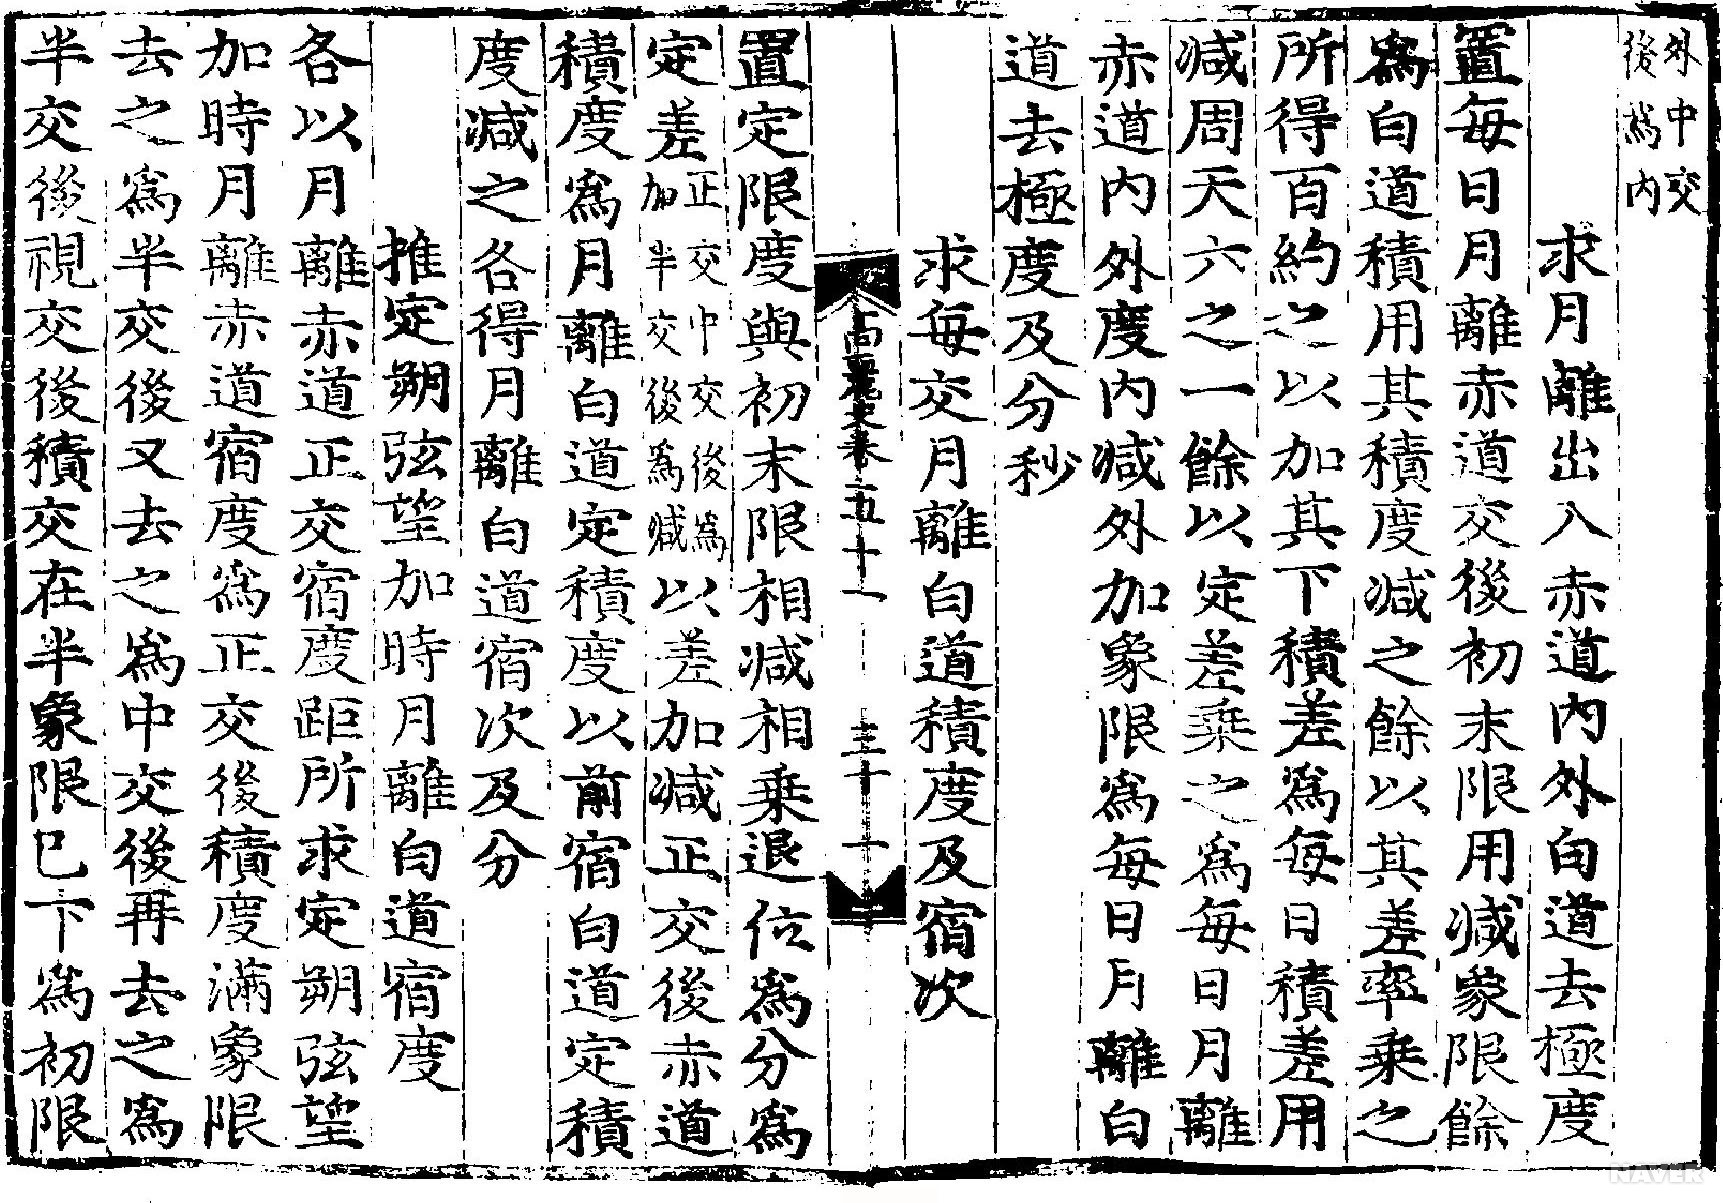 外中交
後爲内
求月離出入赤道內外白道去極度
置每日月離赤道交後初末限用减象限餘
爲白道積用其積度减之餘以其差率乘之
所得百約之以加其下積差爲每日積差用
减周天六之一餘以定差乘之爲每日月離
赤道內外度內减外加象限爲每日月離白
道去極度及分秒
求每交月離白道積度及宿次
置定限度與初末限相减相乘退位爲分爲
定差正交中交後爲加半交後爲减以差加减正交後赤道
積度爲月離白道定積度以前宿白道定積
度减之各得月離白道宿次及分
推定朔弦望加時月離白道宿度
各以月離赤道正交宿度距所求定朔弦望
加時月離赤道宿度爲正交後積度滿象限
去之爲半交後又去之爲中交後再去之爲
半交後視交後積交在半象限已下爲初限
高麗史卷五十一
三十一
NAVER